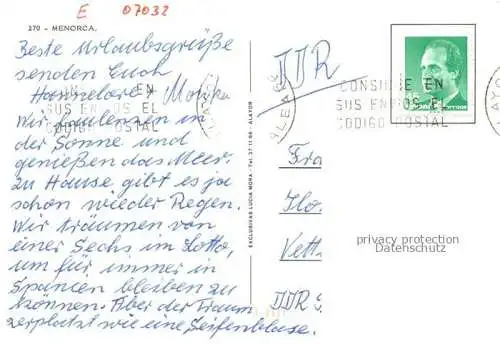 E 07032
270 - MENORCA.
Beste Urlaubsgrüße
senden Euch
Hannelore + Monika
Wir faulenzen in
der Sonne und
genießen das Meer.
Zu Hause gibt es ja
schon wieder Regen.
Wir träumen von
einer Sechs im Lotto,
um für immer in
Spanien bleiben zu
können. Aber der Traum
zerplatzt wie eine Seifenblase.
EN
SUS ENVIOS EL
CODIGO POSTAL
EXCLUSIVAS LUCIA MORA - Tel. 37 11 66 - ALAYOR
DDR
CONSIGNE EN
SUS ENVIOS EL
CODIGO POSTAL
45
Fra
Flo
Vett
DDR
privacy protection
Datenschutz